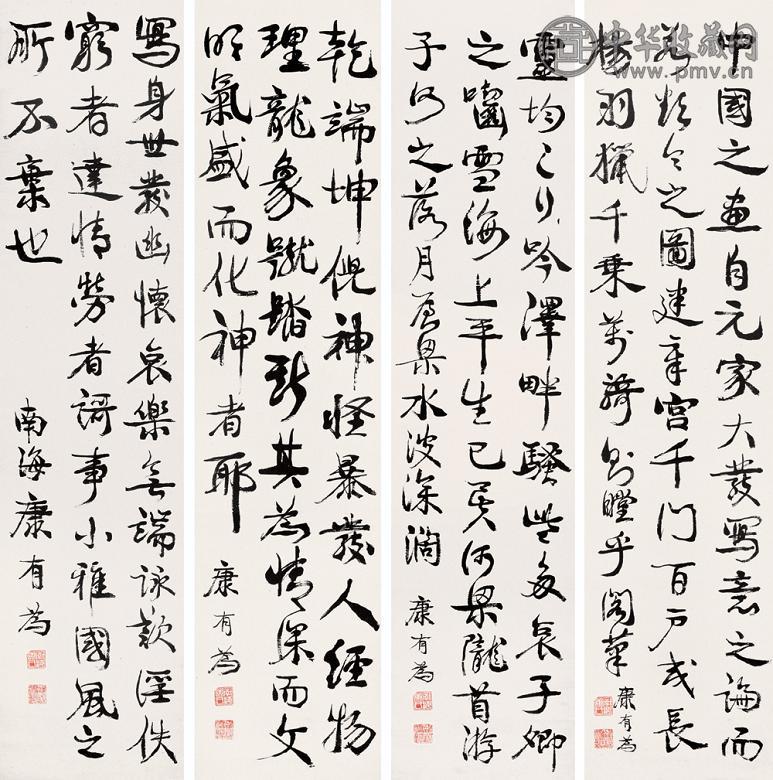 中國之畫自元家大發寫意之論而
若令之圖建章宮千門百戶或長
楊羽獵千乘萬騎則瞠乎閣筆
康有為
靈均之行吟澤畔騷些多哀子卿
之嚙雪海上平生已矣河梁隴首游
子何之落月屋梁水波深闊
康有為
乾端坤倪神怪暴發人經物
理龍象蹴踏斯其為情深而文
明氣盛而化神者耶
康有為
寫身世發幽懷哀樂無端詠歎淫佚
窮者達情勞者謌事小雅國風之
所不棄也
南海康有為
中华收藏网
www.pmv.cn